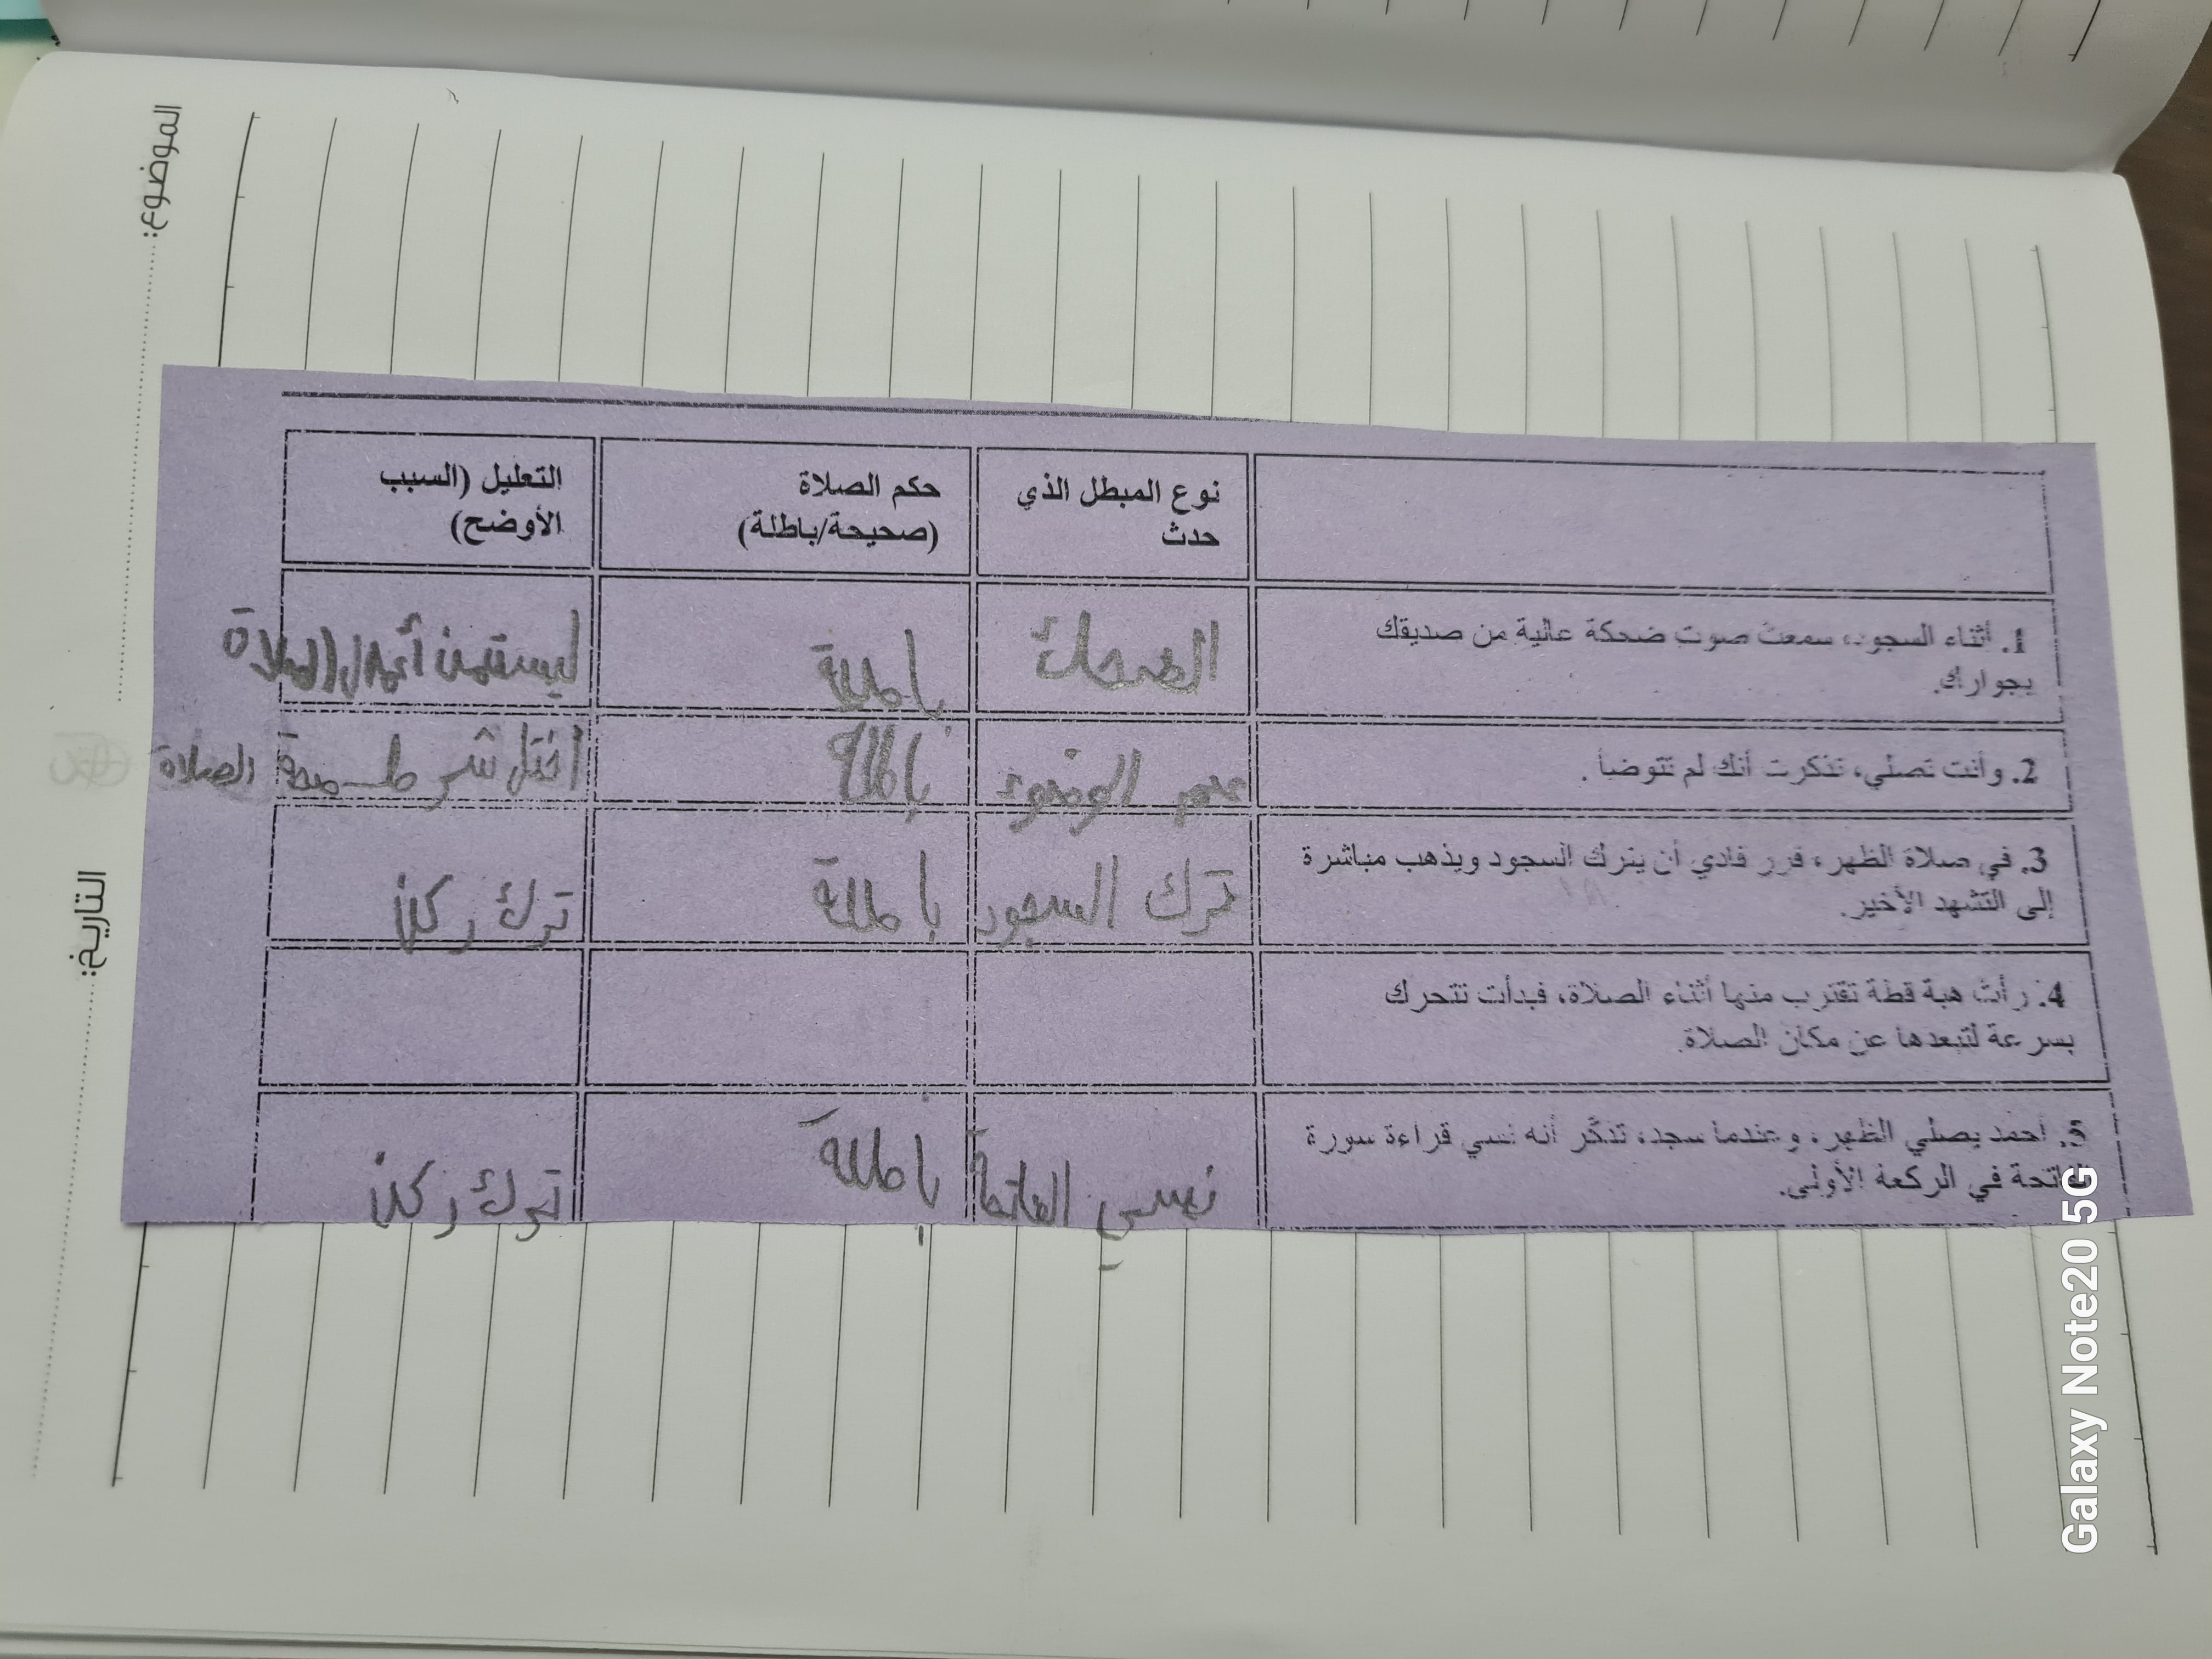 الموضوع:
التاريخ:
نوع المبطل الذي حدث
حكم الصلاة (صحيحة/باطلة)
التعليل (السبب الأوضح)
1. أثناء السجود، سمعت صوت ضحكة عالية من صديقك
بجوارك.
الضحك
باطلة
ليست من أعمال الصلاة
2. وأنت تصلي، تذكرت أنك لم تتوضأ .
عدم الوضوء
باطلة
اختل شرط صحة الصلاة
3. في صلاة الظهر، قرر فادي أن يترك السجود ويذهب مباشرة
إلى التشهد الأخير.
ترك السجود
باطلة
ترك ركن
4. رأت هبة قطة تقترب منها أثناء الصلاة، فبدأت تتحرك
بسرعة لتبعدها عن مكان الصلاة.
5. أحمد يصلي الظهر، وعندما سجد، تذكّر أنه نسي قراءة سورة
الفاتحة في الركعة الأولى.
نسي الفاتحة
باطلة
ترك ركن
Galaxy Note20 5G